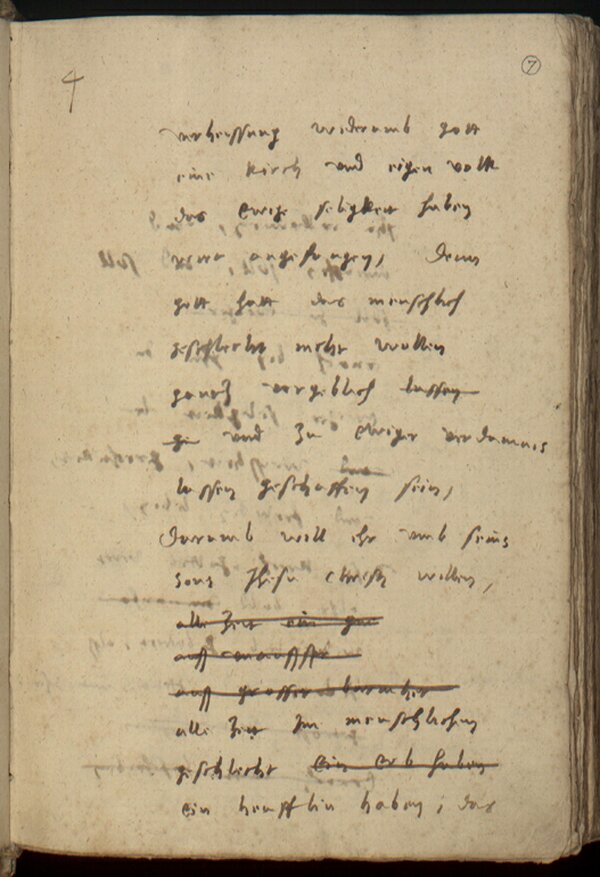 4
7
verheissung widerumb gott
eine kirch und eigen volk
das Ewige seligkeit haben
angefangen, Denn
gott hatt das menschlich
geschlecht nicht wollen
gantz vergeblich lassen
und zu Ewiger verdamnis
lassen geschaffen sein,
Darumb will ehr umb seins
sons Jhesu Christi willen,
alle Zeit ein
auss
auss grosser
alle Zeit Im menschlichen
geschlecht ein erb haben
ein heufflin haben, das